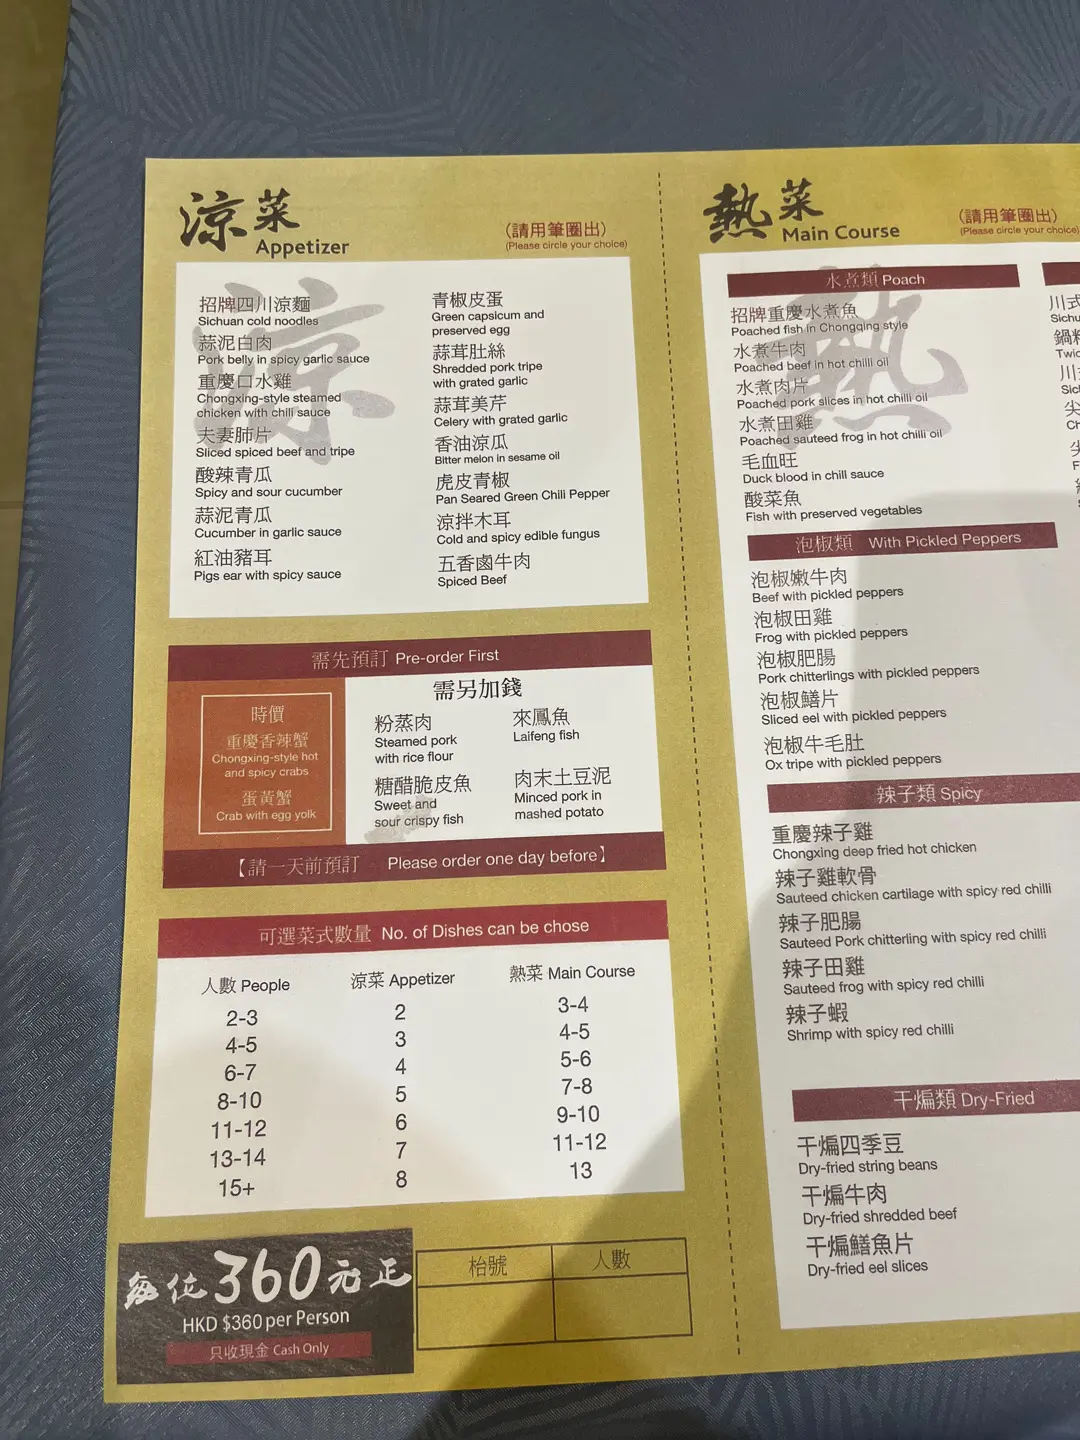 涼菜
Appetizer
(請用筆圈出)
(Please circle your choice)
招牌四川涼麵
Sichuan cold noodles
蒜泥白肉
Pork belly in spicy garlic sauce
重慶口水雞
Chongxing-style steamed
chicken with chili sauce
夫妻肺片
Sliced spiced beef and tripe
酸辣青瓜
Spicy and sour cucumber
蒜泥青瓜
Cucumber in garlic sauce
紅油豬耳
Pigs ear with spicy sauce
青椒皮蛋
Green capsicum and
preserved egg
蒜茸肚絲
Shredded pork tripe
with grated garlic
蒜茸美芹
Celery with grated garlic
香油涼瓜
Bitter melon in sesame oil
虎皮青椒
Pan Seared Green Chili Pepper
涼拌木耳
Cold and spicy edible fungus
五香鹵牛肉
Spiced Beef
涼
需先預訂 Pre-order First
時價
重慶香辣蟹
Chongxing-style hot
and spicy crabs
蛋黃蟹
Crab with egg yolk
需另加錢
粉蒸肉
Steamed pork
with rice flour
糖醋脆皮魚
Sweet and
sour crispy fish
來鳳魚
Laifeng fish
肉末土豆泥
Minced pork in
mashed potato
【請一天前預訂 Please order one day before】
可選菜式數量 No. of Dishes can be chose
人數 People 涼菜 Appetizer 熱菜 Main Course
2-3 2 3-4
4-5 3 4-5
6-7 4 5-6
8-10 5 7-8
11-12 6 9-10
13-14 7 11-12
15+ 8 13
每位360元正
HKD $360 per Person
只收現金 Cash Only
枱號 人數
熱菜
Main Course
(請用筆圈出)
(Please circle your choice)
水煮類 Poach
招牌重慶水煮魚
Poached fish in Chongqing style
水煮牛肉
Poached beef in hot chilli oil
水煮肉片
Poached pork slices in hot chilli oil
水煮田雞
Poached sauteed frog in hot chilli oil
毛血旺
Duck blood in chill sauce
酸菜魚
Fish with preserved vegetables
熱
泡椒類 With Pickled Peppers
泡椒嫩牛肉
Beef with pickled peppers
泡椒田雞
Frog with pickled peppers
泡椒肥腸
Pork chitterlings with pickled peppers
泡椒鱔片
Sliced eel with pickled peppers
泡椒牛毛肚
Ox tripe with pickled peppers
辣子類 Spicy
重慶辣子雞
Chongxing deep fried hot chicken
辣子雞軟骨
Sauteed chicken cartilage with spicy red chilli
辣子肥腸
Sauteed Pork chitterling with spicy red chilli
辣子田雞
Sauteed frog with spicy red chilli
辣子蝦
Shrimp with spicy red chilli
干煸類 Dry-Fried
干煸四季豆
Dry-fried string beans
干煸牛肉
Dry-fried shredded beef
干煸鱔魚片
Dry-fried eel slices
川式
Sichu
鍋
Twic
川
Sic
尖
Ch
尖
F